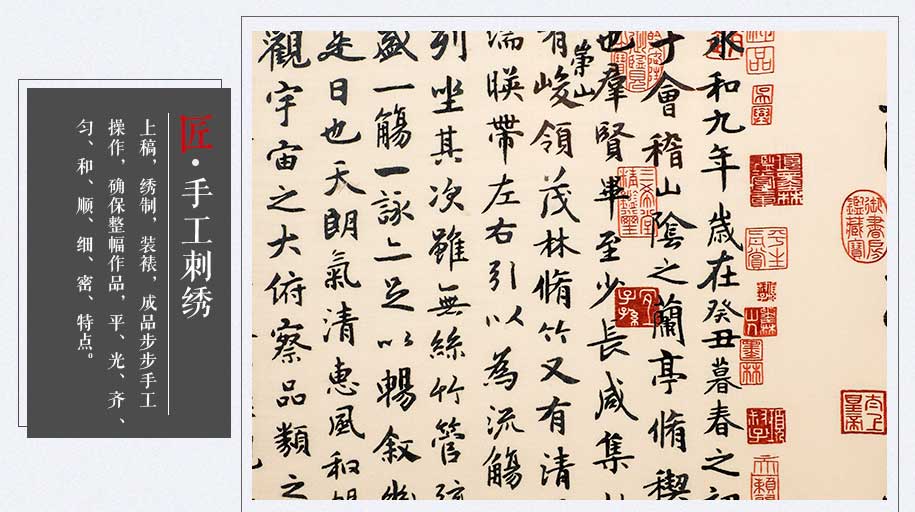 匠·手工刺绣
上稿，绣制，装裱，成品步步手工
操作，确保整幅作品，平、光、齐、
匀、和、顺、细、密、特点。
永和九年歲在癸丑暮春之初
于會稽山陰之蘭亭脩禊
也羣賢畢至少長咸集
崇山
有峻領茂林脩竹又有清
湍暎帶左右引以為流觴
列坐其次雖無絲竹管弦
盛一觴一詠亦足以暢敘幽
是日也天朗氣清惠風和暢
觀宇宙之大俯察品類之
御書房鑑藏寶
太上皇帝
三希堂精鑒璽
宜子孫